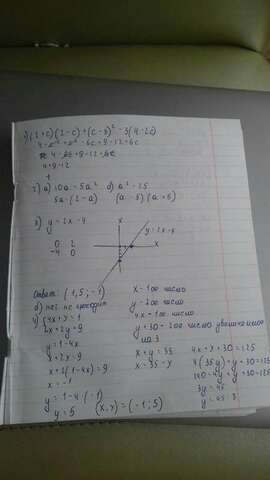 1) (2+c)(2-c)+(c-3)² - 3(4-2c)
4-c²+c²-6c+9-12+6c
4-6c+9-12+6c
4+9-12
1
2) a) 10a-5a² б) a²-25
5a·(2-a) (a-5)(a+5)
3) y=2x-4
x
y=2x-4
0 2
-4 0
x
Ответ: (1,5; -1)
б) нет. не проходит
x - 1ое число
y - 2ое число
4x = 1ое число
y+30 = 2ое число увеличенное
на 3
4) 4x+y=1
2x+2y=9
y=1-4x
x+2y=9
x+2(1-4x)=9
x=-1
y=1-4·(-1)
y=5
(x,y)=(-1;5)
x+y=35
x=35-y
4x+y+30=125
4(35y)+y+30=125
140-4y+y+30=125
3y=45
y=45:3